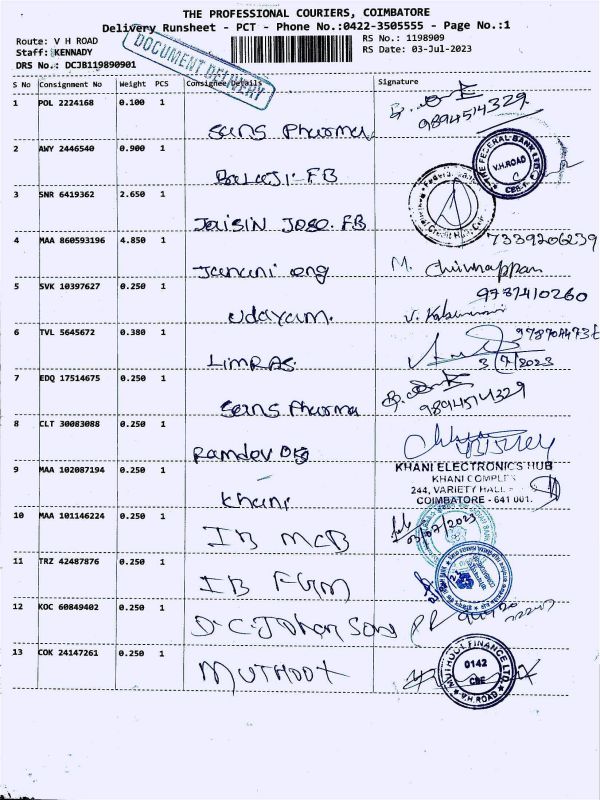 THE PROFESSIONAL COURIERS, COIMBATORE
Delivery Runsheet - PCT - Phone No.:0422-3505555 - Page No.:1
Route: V H ROAD
RS No.: 1198909
Staff: KENNADY
RS Date: 03-Jul-2023
DRS No.: DCJB119890901
DOCUMENT DELIVERY
S No Consignment No Weight PCS Consignee/Details Signature
1 POL 2224168 0.100 1
Sans Pharma
9894514329
2 AWY 2446540 0.900 1
Balaji-FB
THE FEDERAL BANK LTD
V.H.ROAD
3 SNR 6419362 2.650 1
Jaisin Jose. FB
4 MAA 860593196 4.850 1
Janani
7339206239
M. Chinnappan
5 SVK 10397627 0.250 1
Udayam.
9787410260
6 TVL 5645672 0.380 1
LIMRAS
3/7/2023
7 EDQ 17514675 0.250 1
Sans Pharma
9894514329
8 CLT 30083088 0.250 1
Ramdev
9 MAA 102087194 0.250 1
Khani
KHANI ELECTRONICS HUB
KHANI COMPLEX
244, VARIETY HALL
COIMBATORE - 641 001.
10 MAA 101146224 0.250 1
IB MCB
03/07/2023
11 TRZ 42487876 0.250 1
IB FGM
12 KOC 60849402 0.250 1
13 COK 24147261 0.250 1
MUTHOOT
MUTHOOT FINANCE LTD.
0142
CBE
V.H.ROAD